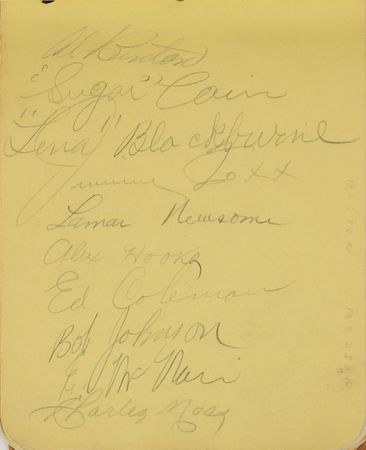 Al Benton
"Sugar" Cain
"Lena" Blackburne
Jimmie Foxx
Lamar Newsome
Alex Hooks
Ed Coleman
Bob Johnson
E. McNair
Charles Moss
BOSTON